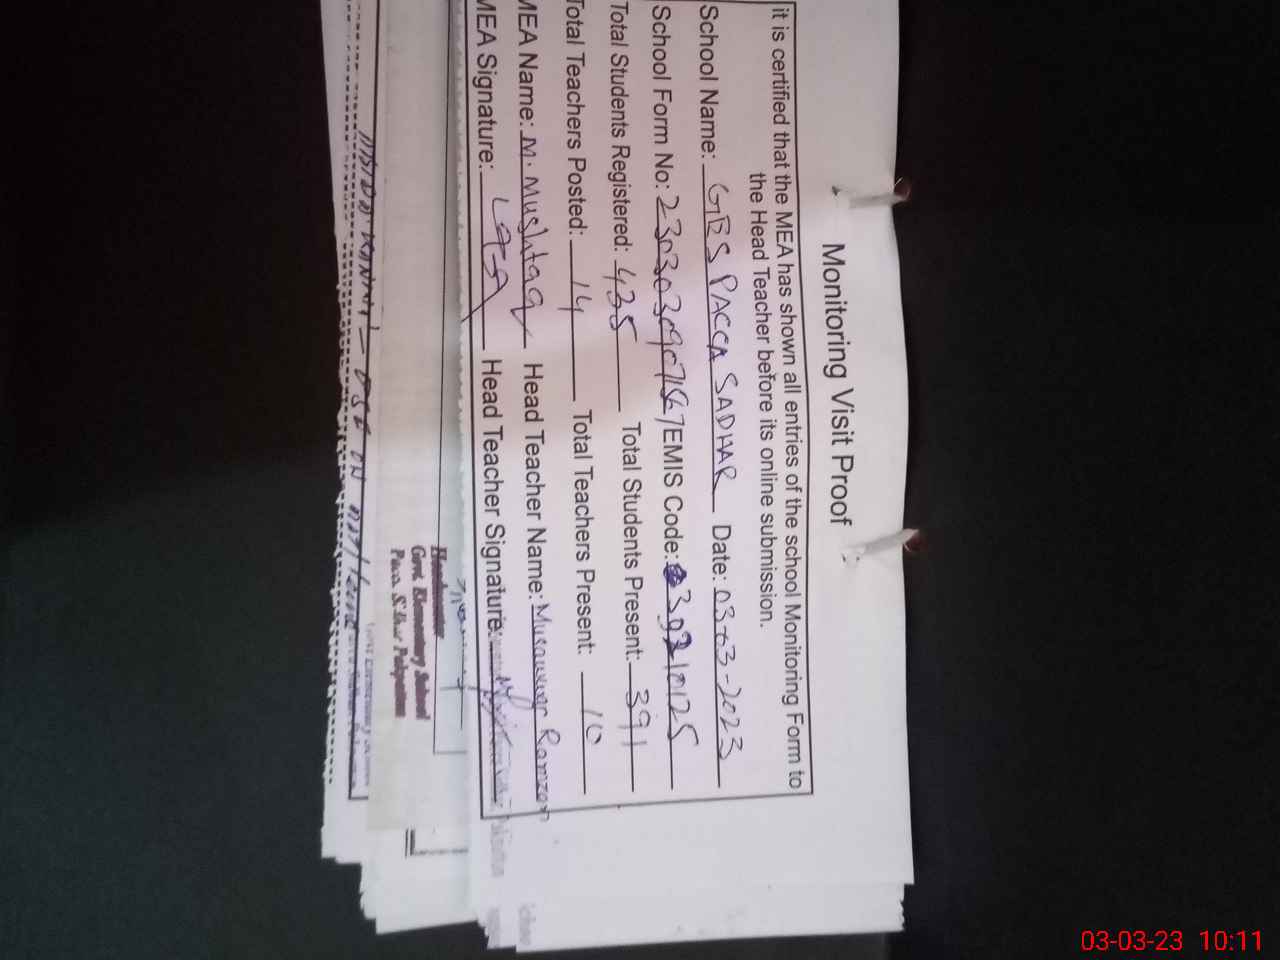 Monitoring Visit Proof
it is certified that the MEA has shown all entries of the school Monitoring Form to
the Head Teacher before its online submission.
School Name: GES PACCA SADHAR Date: 03-03-2023
School Form No: EMIS Code: 39210125
Total Students Registered: 435 Total Students Present: 391
Total Teachers Posted: 14 Total Teachers Present: 10
MEA Name: M. Mushtaq Head Teacher Name: Musawar Ramzan
MEA Signature: Head Teacher Signature:
Headmaster
Govt. Elementary School
Paca Sidhar Pakpattan
03-03-23 10:11